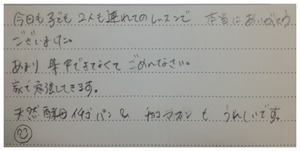 今日も子ども2人も連れてのレッスンで 本当にありがとう
ございました。
あまり 集中できてなくて ごめんなさい。
家で復習してきます。
天然酵母イチゴパン & チョコマカロンも うれしいです。